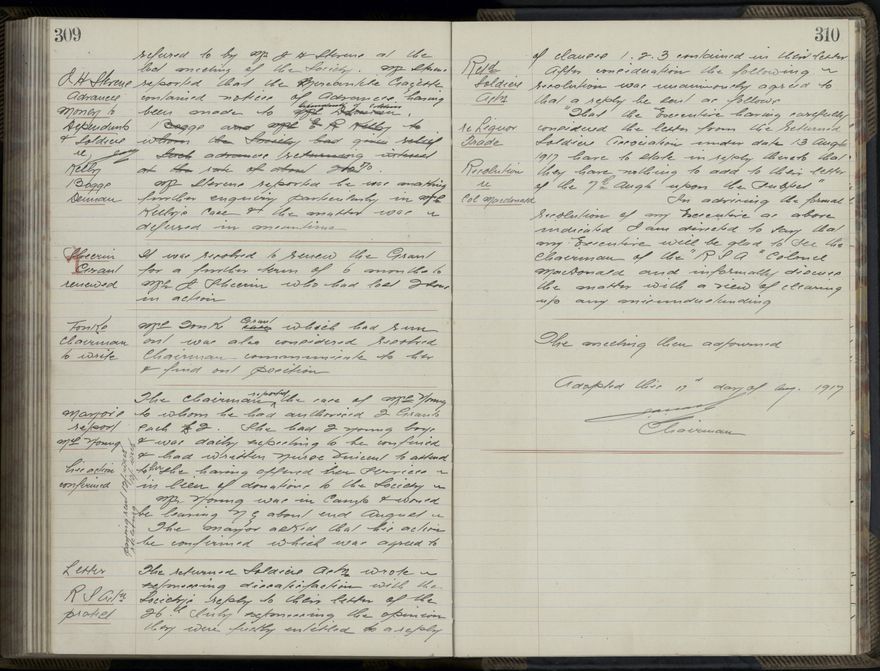 309
referred to by Mr J H Sterne at the
last meeting of the Society. Mr Sterne
J H Sterne
reported that the Mercantile Gazette
Advances
contained notices of advances having
Money to
been made to
Dependents
Boggs and Mrs E R Kelly to
& Soldiers
whom the Society had given relief
re
Such advances returning interest
Kelly
at the rate of about
Boggs
Mr Sterne reported he was making
Denman
further enquiry particularly in Mrs
Kelly's case & the matter was
deferred in meantime
Sheerin
It was resolved to renew the Grant
Grant
for a further term of 6 months to
renewed
Mrs J Sheerin who had lost 2 sons
in action
Tonks
Mrs Tonk Grant which had run
Chairman
out was also considered resolved
to write
Chairman communicate to her
& find out position
The Chairman reported the case of Mrs Young
Mayor's
to whom he had authorised 2 Grants
report
each £2. She had 2 young boys
Mrs Young
& was daily expecting to be confined
& had written Nurse Vincent to attend
his action
to her she having offered her services
confirmed
in lieu of donations to the Society
Mr Young was in Camp & would
be leaving NZ about end August
The Mayor asked that his action
be confirmed which was agreed to
Letter
The returned Soldiers Assn wrote
expressing dissatisfaction with the
R S Assn
Society's reply to their letter of the
protest
26th July expressing the opinion
they were fully entitled to a reply
310
of clauses 1. 2. 3 contained in their letter
Retd
After consideration the following
Soldiers
resolution was unanimously agreed to
Assn
that a reply be sent as follows
"That the Executive having carefully
re Liquor
considered the letter from the Returned
Trade
Soldiers Association under date 13 Augt
1917 have to state in reply thereto that
Resolution
they have nothing to add to their letter
re
of the 7th Augt upon the subject"
Col Macdonald
In advising the formal
resolution of my Executive as above
indicated I am directed to say that
my Executive will be glad to see the
Chairman of the "R S A" Colonel
MacDonald and informally discuss
the matter with a view of clearing
up any misunderstanding
The meeting then adjourned
Adopted this day of Aug. 1917
Chairman